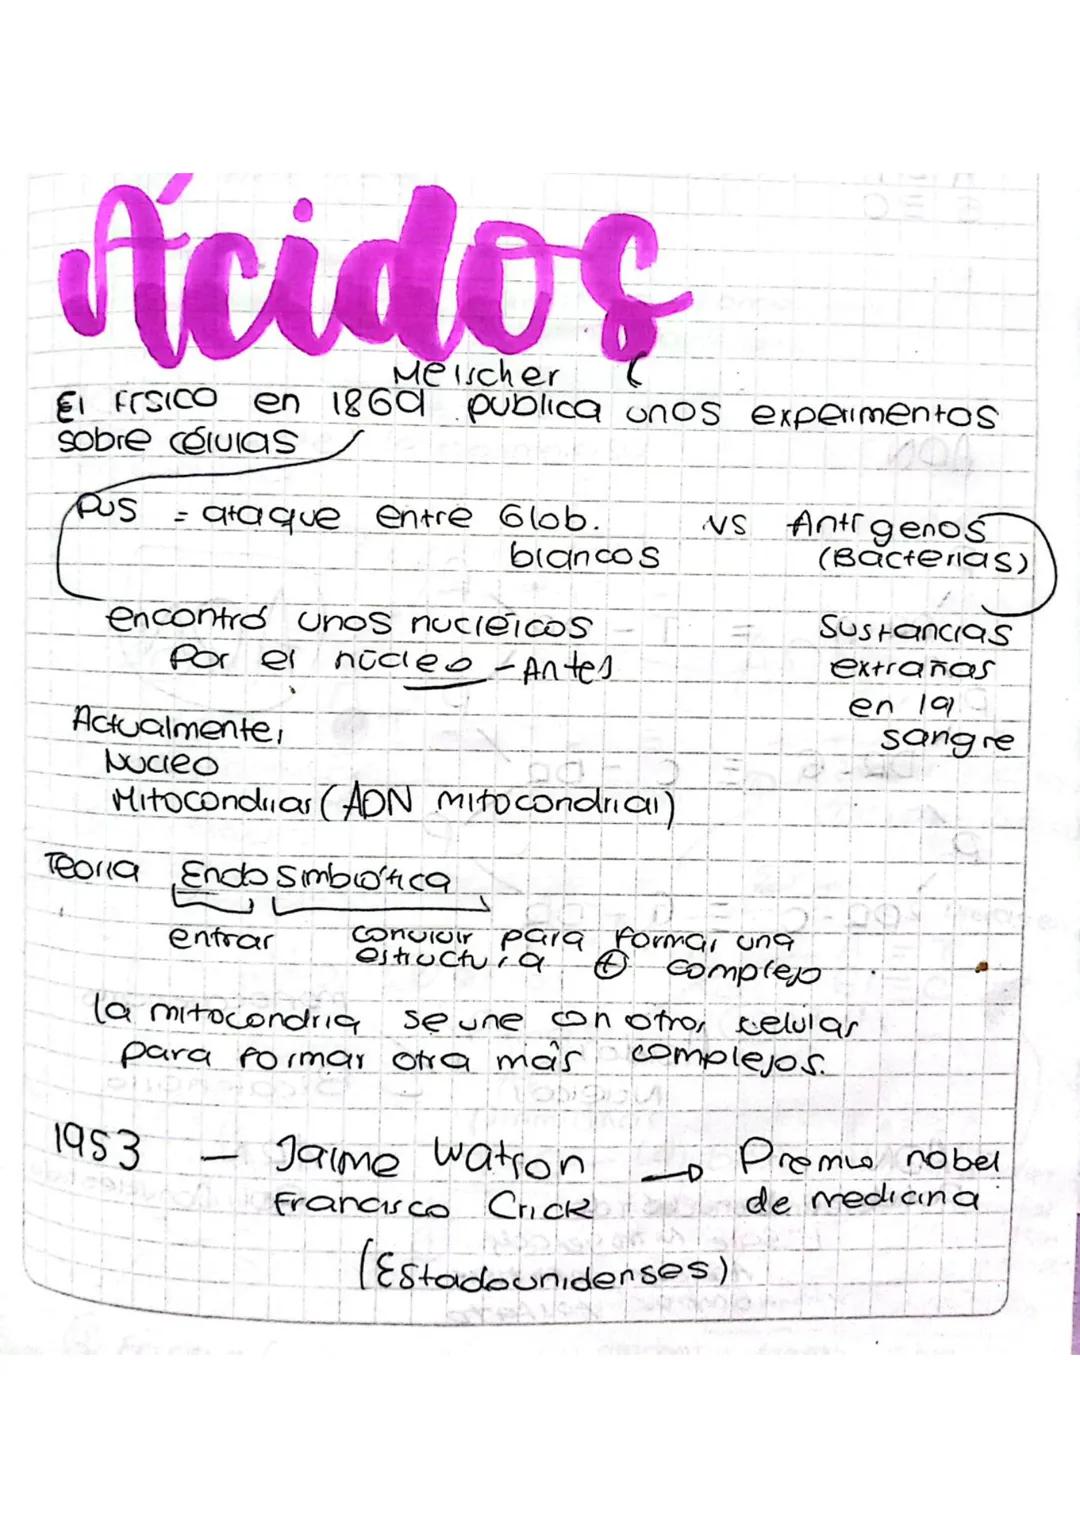 Ácidos
Meischer
El físico en 1869 publica unos experimentos
sobre células
Pus = ataque entre Glob. vs Antígenos
blancos (Bacterias)
encontró unos nucléicos Sustancias
Por el núcleo - Antes extrañas
en la
Actualmente, sangre
Nucleo
Mitocondrias (ADN mitocondrial)
Teoría Endo Simbiótica
entrar convivir para formar una
estructura + complejo
la mitocondria se une con otras celular
para formar otra más complejos.
1953 - Jaime Watson → Premio nobel
Francisco Crick de medicina
(Estadounidenses)